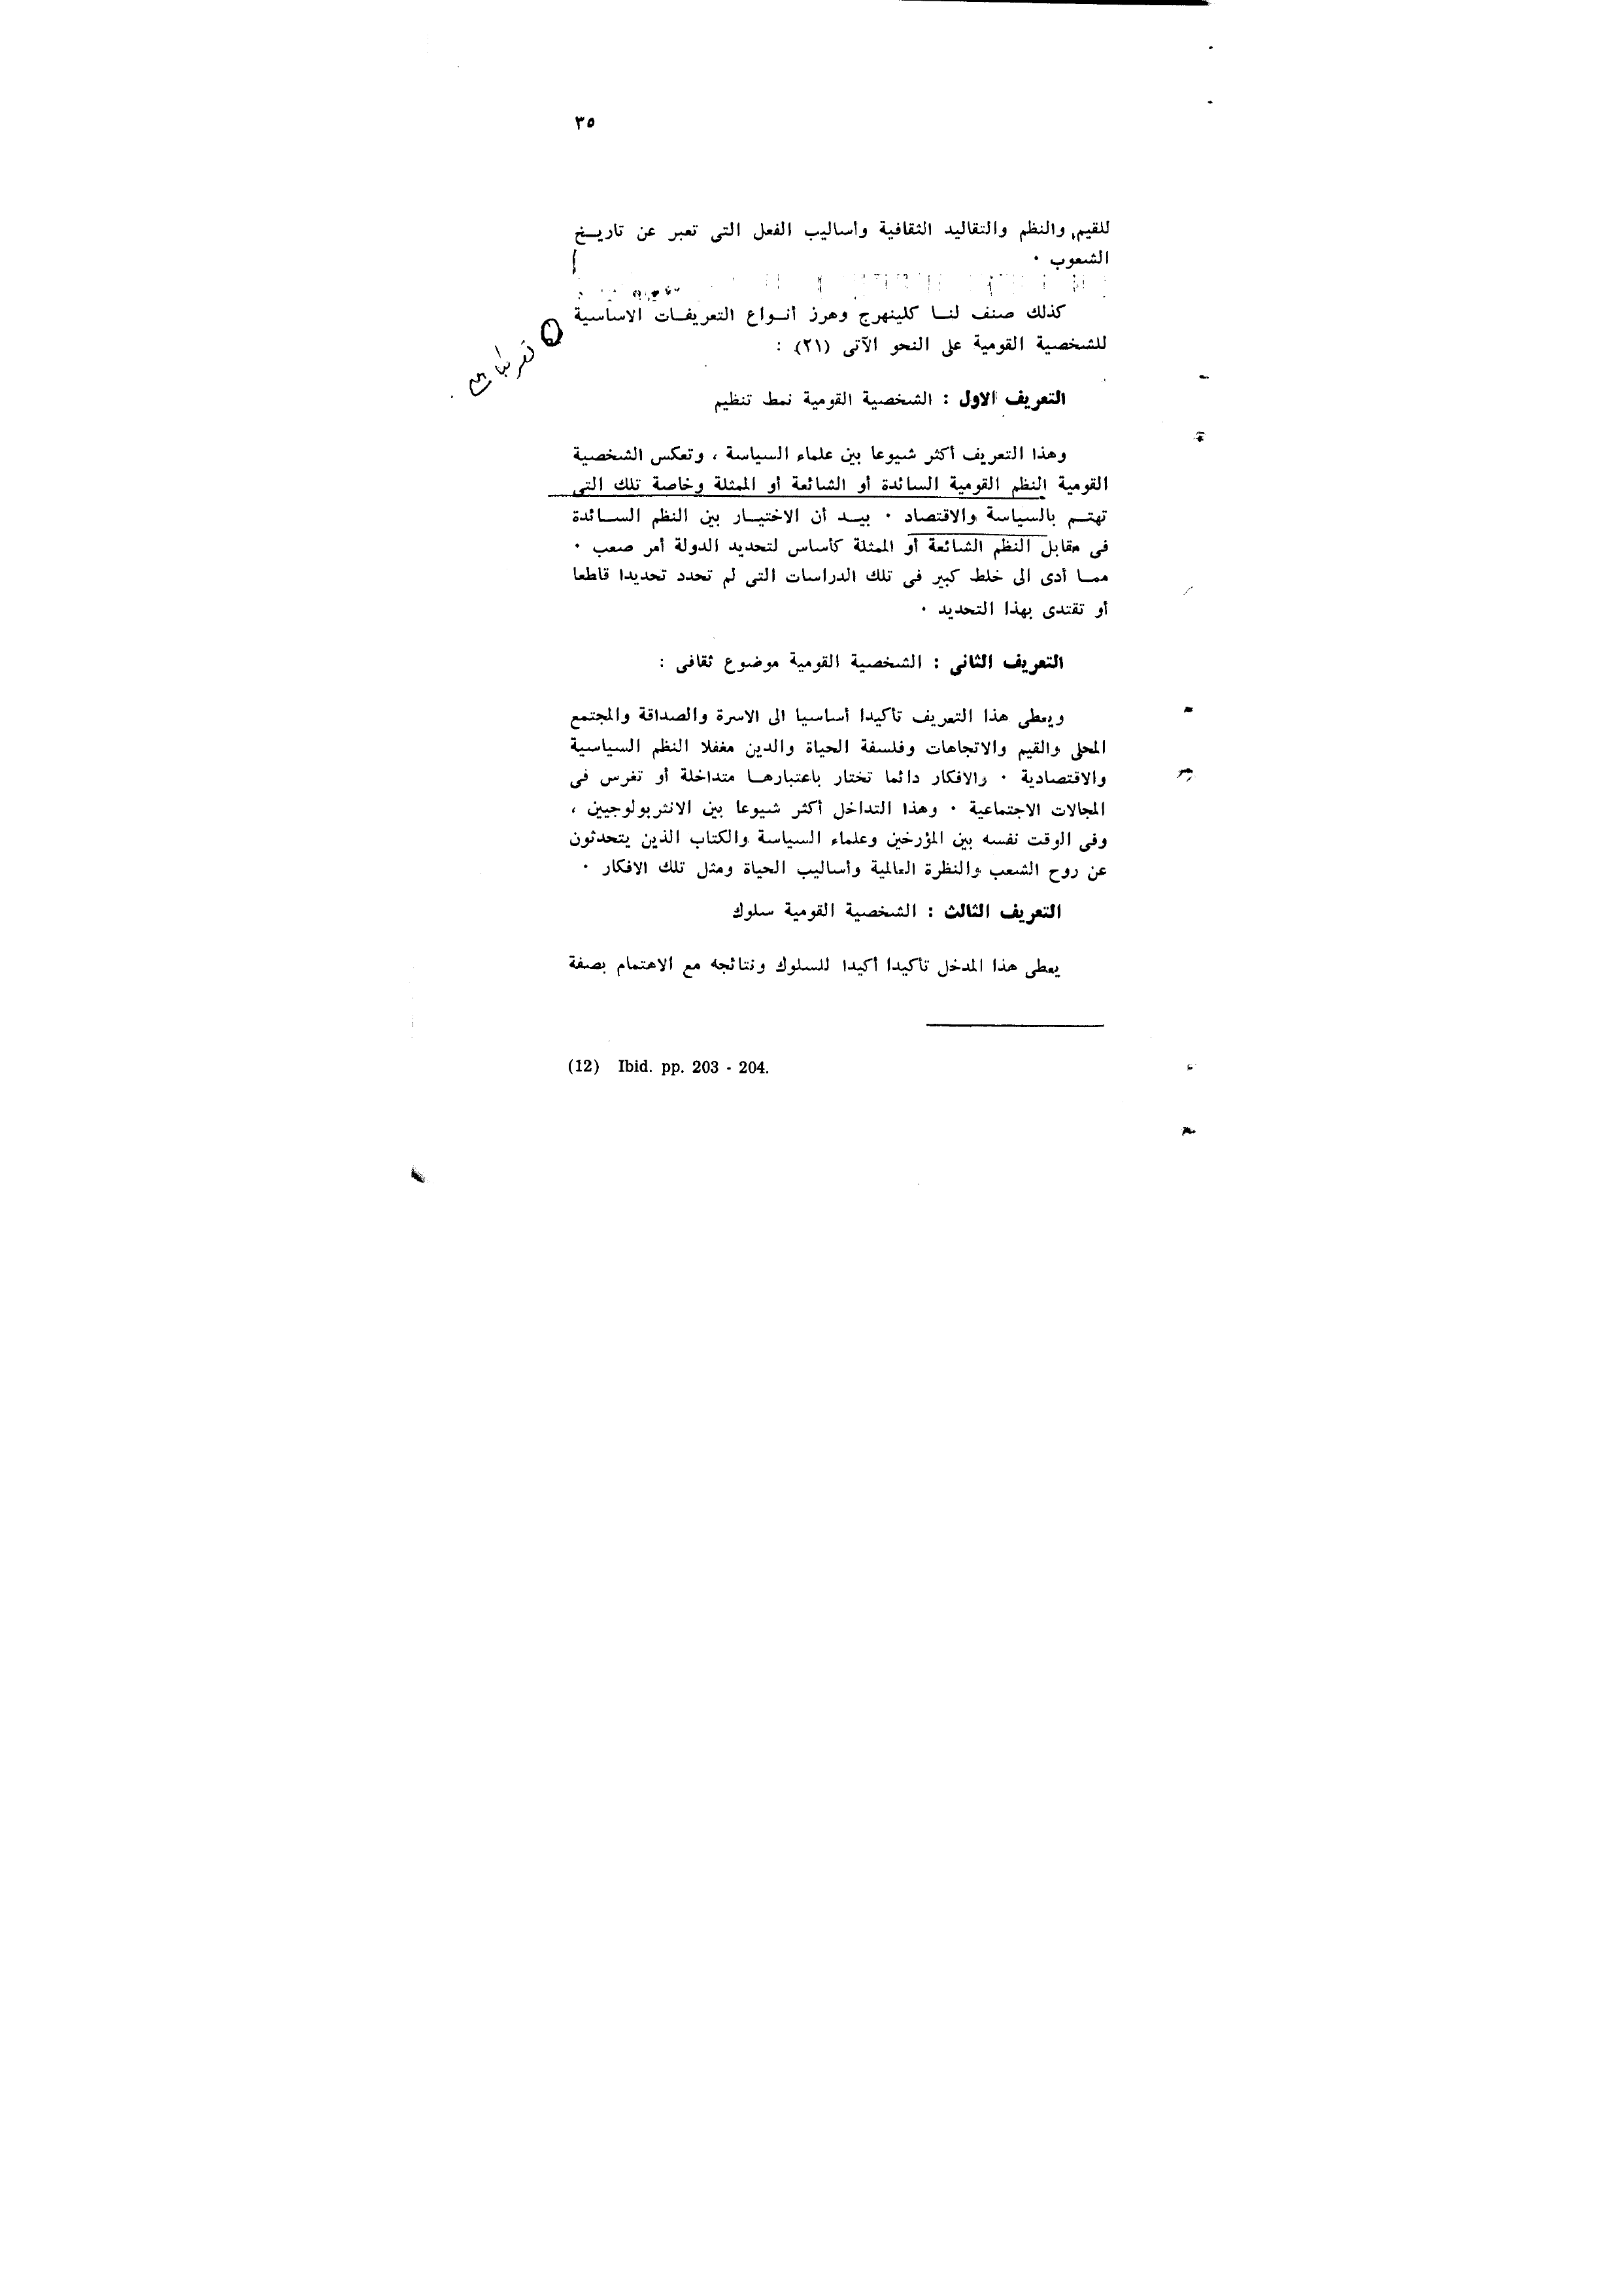 ٣٥
للقيم والنظم والتقاليد الثقافية وأساليب الفعل التى تعبر عن تاريخ
الشعوب ٠
كذلك صنف لنا كلينهرج وهرز أنواع التعريفات الاساسية
للشخصية القومية على النحو الآتى (٢١) :
التعريف الاول : الشخصية القومية نمط تنظيم
وهذا التعريف أكثر شيوعا بين علماء السياسة ، وتعكس الشخصية
القومية النظم القومية السائدة أو الشائعة أو الممثلة وخاصة تلك التى
تهتم بالسياسة والاقتصاد ٠ بيد أن الاختيار بين النظم السائدة
فى مقابل النظم الشائعة أو الممثلة كأساس لتحديد الدولة أمر صعب ٠
مما أدى الى خلط كبير فى تلك الدراسات التى لم تحدد تحديدا قاطعا
أو تقتدى بهذا التحديد ٠
التعريف الثانى : الشخصية القومية موضوع ثقافى :
ويعطى هذا التعريف تأكيدا أساسيا الى الاسرة والصداقة والمجتمع
المحلى والقيم والاتجاهات وفلسفة الحياة والدين مغفلا النظم السياسية
والاقتصادية ٠ والافكار دائما تختار باعتبارها متداخلة أو تغرس فى
المجالات الاجتماعية ٠ وهذا التداخل أكثر شيوعا بين الانثربولوجيين ،
وفى الوقت نفسه بين المؤرخين وعلماء السياسة والكتاب الذين يتحدثون
عن روح الشعب والنظرة العالمية وأساليب الحياة ومثل تلك الافكار ٠
التعريف الثالث : الشخصية القومية سلوك
يعطى هذا المدخل تأكيدا أكيدا للسلوك ونتائجه مع الاهتمام بصفة
(12) Ibid. pp. 203 - 204.